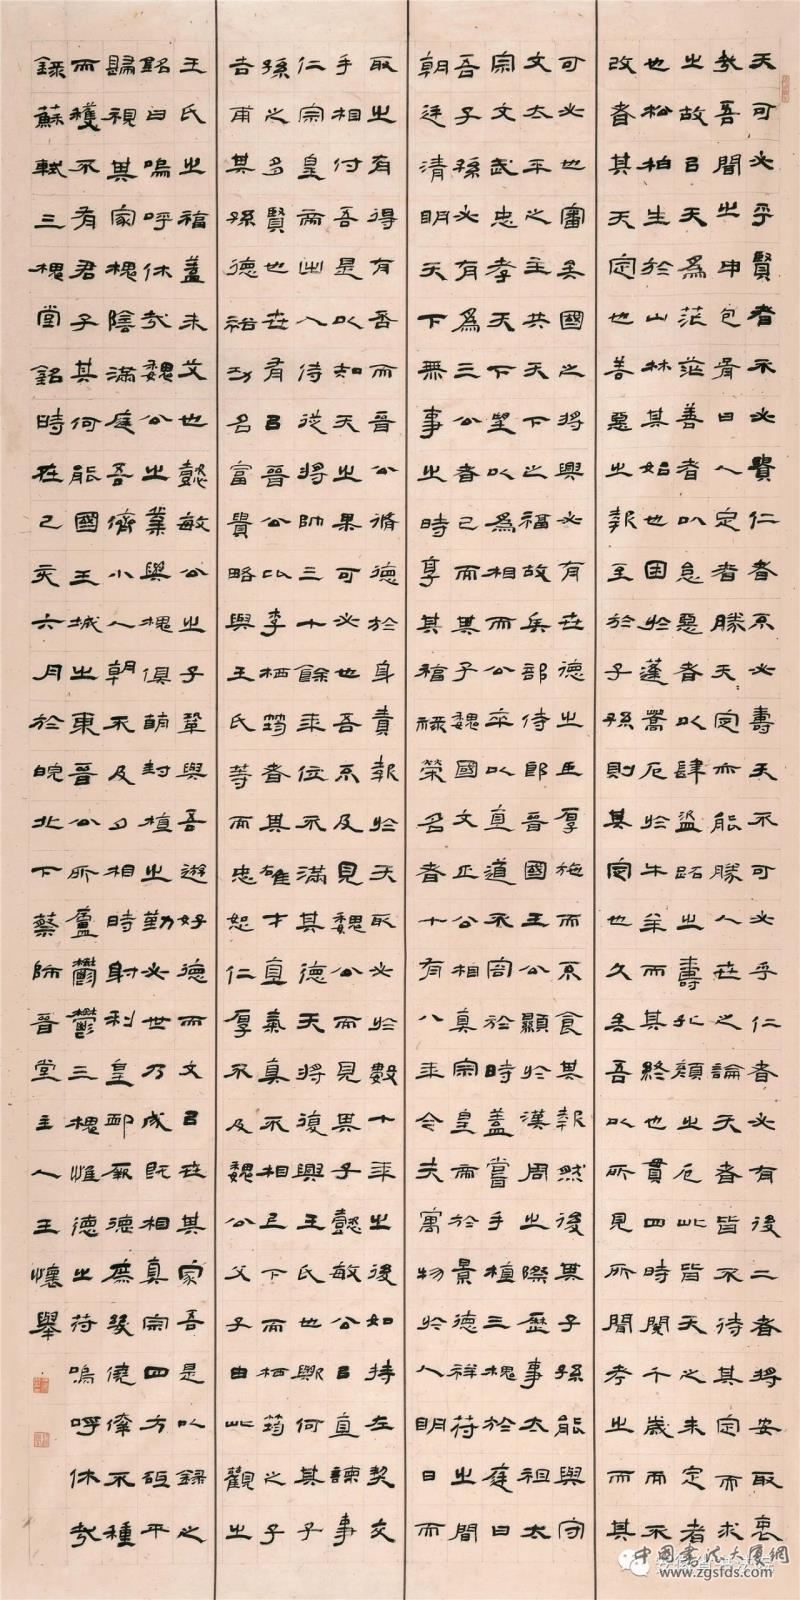 天可必乎賢者不必貴仁者不必壽天不可必乎仁者必有後二者將安取衷
哉吾聞之申包胥曰人定者勝天定亦能勝人世之論天者皆不待其定而求
之故以天為茫茫善者以怠惡者以肆盜跖之壽孔顏之厄此皆天之未定者
也松柏生於山林其始也困於蓬蒿厄於牛羊而其終也貫四時閱千歲而不
改者其天定也善惡之報至於子孫則其定也久矣吾以所見所聞考之而其
可必也審矣國之將興必有世德之臣厚施而不食其報然後其子孫能與守
文太平之主共天下之福故兵部侍郎晉國王公顯於漢周之際歷事太祖太
宗文武忠孝天下望以為相而公卒以直道不容於時蓋嘗手植三槐於庭曰
吾子孫必有為三公者已而其子魏國文正公相真宗皇帝於景德祥符之間
朝廷清明天下無事之時享其福祿榮名者十有八年今夫寓物於人明日而
取之有得有否而晉公脩德於身責報於天取必於數十年之後如持左契交
手相付吾是以知天之果可必也吾不及見魏公而見其子懿敏公以直諫事
仁宗皇帝出入侍從將帥三十餘年位不滿其德天將復興王氏也歟何其子
孫之多賢也世有以晉公比李栖筠者其雄才直氣真不相上下而栖筠之子
吉甫其孫德裕功名富貴略與王氏等而忠恕仁厚不及魏公父子由此觀之
王氏之福蓋未艾也懿敏公之子鞏與吾遊好德而文以世其家吾是以錄之
銘曰嗚呼休哉魏公之業與槐俱萌封植之勤必世乃成既相真宗四方砥平
歸視其家槐陰滿庭吾儕小人朝不及夕相時射利皇卹厥德庶幾僥倖不種
而穫不有君子其何能國王城之東晉公所廬鬱鬱三槐惟德之符嗚呼休哉
錄蘇軾三槐堂銘時在己亥六月於皖北下蔡師晉堂主人王懷舉
中國書法大厦網
www.zgsfds.com